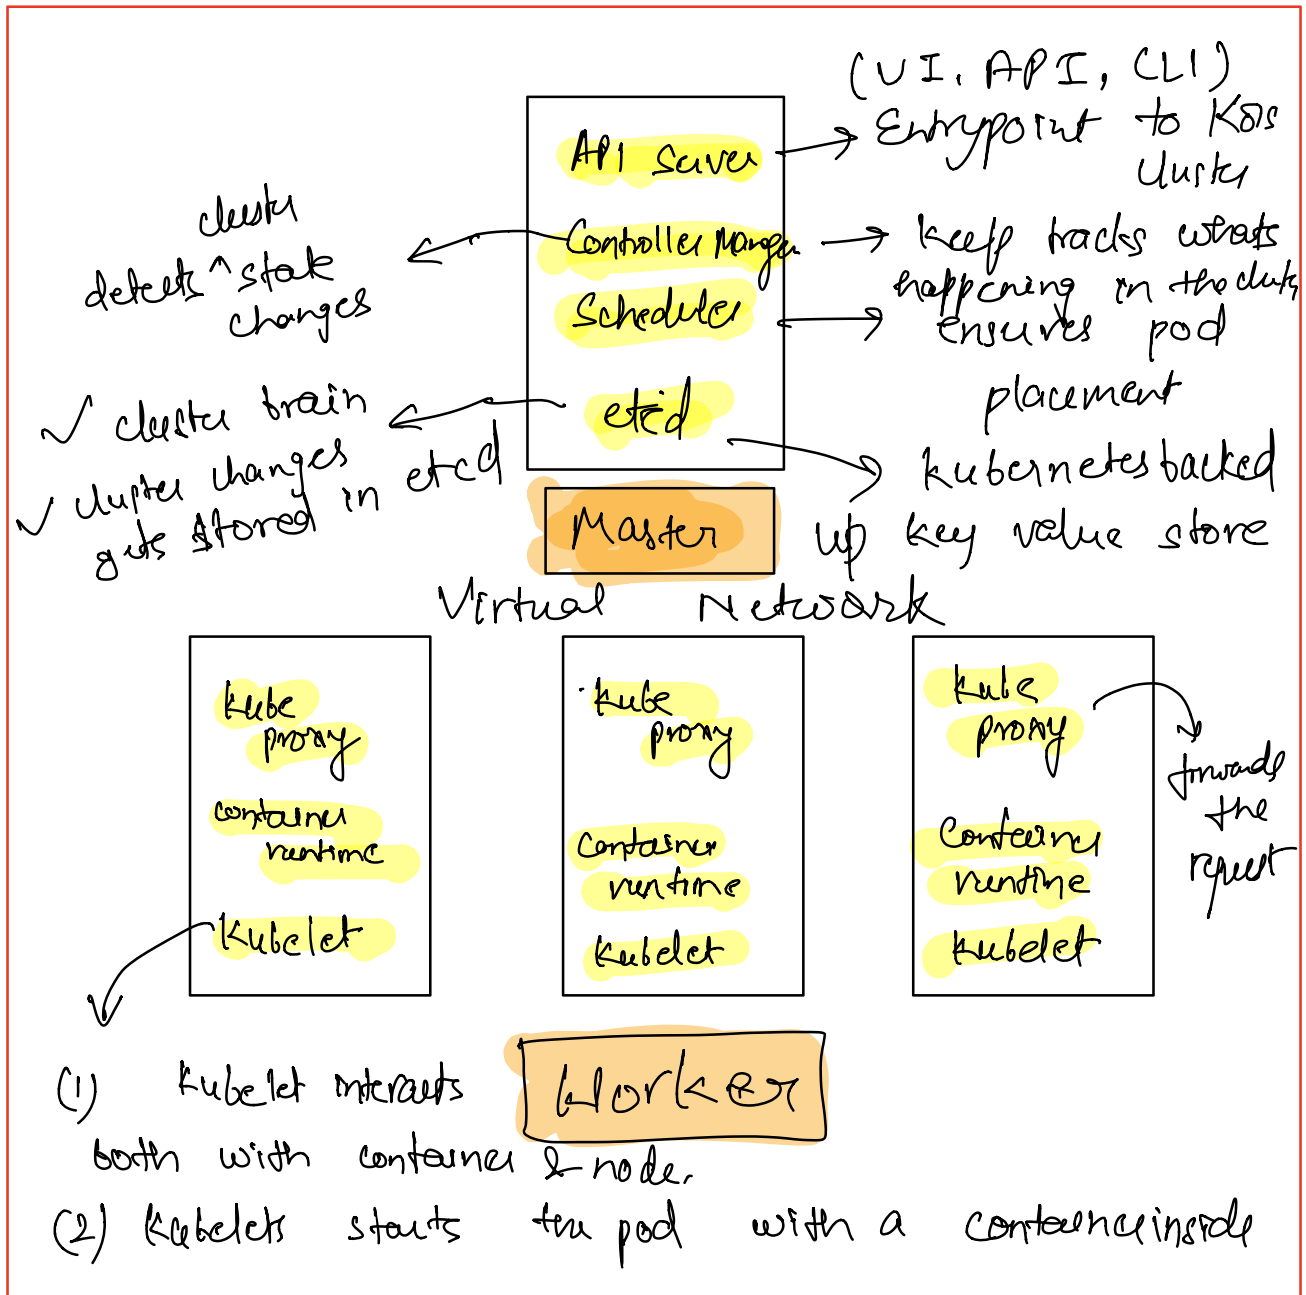 (UI, API, CLI)
API Server
Entrypoint to K8s
cluster
cluster
detects ^ state
changes
Controller Manager
keep tracks whats
happening in the cluster
Scheduler
ensures pod
placement
etcd
✓ cluster brain
✓ cluster changes
gets stored in etcd
kubernetes backed
up key value store
Master
Virtual Network
kube
proxy
container
runtime
kubelet
kube
proxy
container
runtime
kubelet
kube
proxy
container
runtime
kubelet
forwards
the
request
Worker
(1) kubelet interacts
both with container & node.
(2) kubelets starts the pod with a container inside